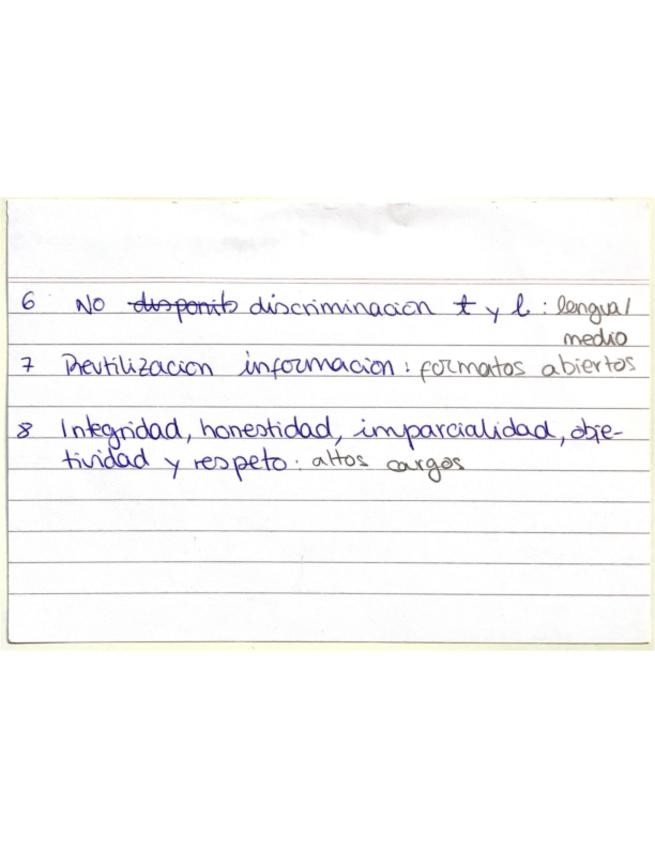 6 No disponib discriminacion t y l : lengua/
medio
7 Reutilizacion informacion : formatos abiertos
8 Integridad, honestidad, imparcialidad, obje-
tividad y respeto : altos cargos